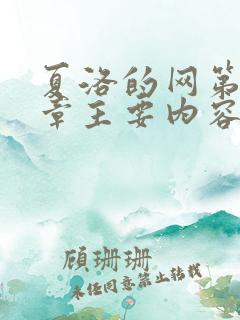 夏洛的网第
章主要内容
顾珊珊
未经同意禁止转载